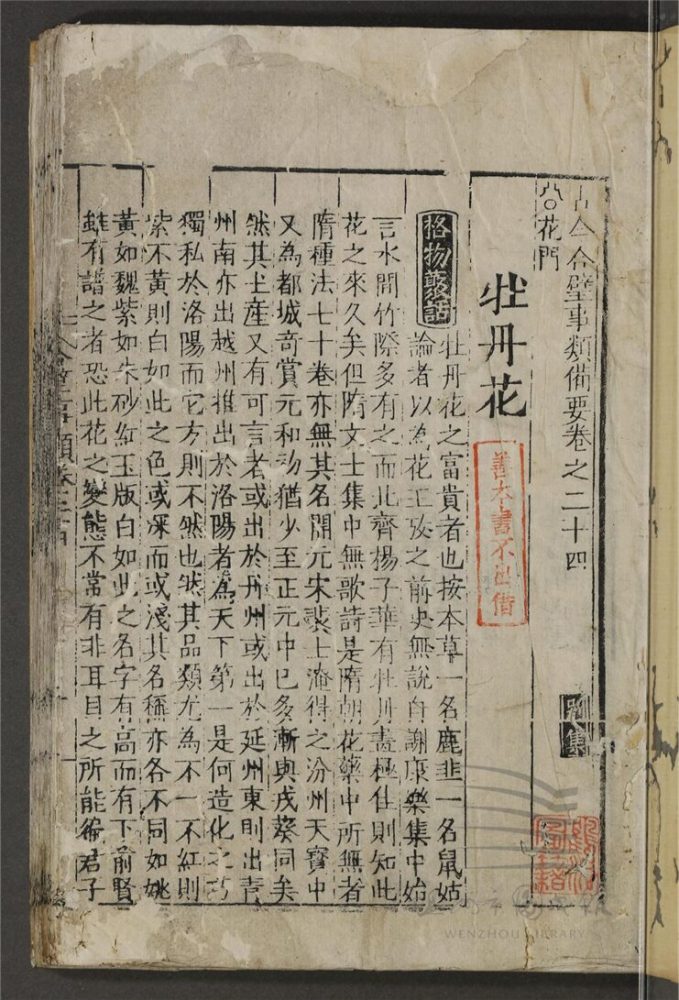 古今合璧事類備要卷之二十四
別集
花門
牡丹花
善本書不出借
格物叢話
牡丹花之富貴者也按本草一名鹿韭一名鼠姑
論者以為花王攷之前史無說自謝康樂集中始
言水間竹際多有之而北齊楊子華有牡丹畫極佳則知此
花之來久矣但隋文士集中無歌詩是隋朝花藥中所無者
隋種法七十卷亦無其名開元宋裴士淹得之汾州天寶中
又為都城奇賞元和初猶少至正元中已多漸與戎葵同矣
然其土產又有可言者或出於丹州或出於延州東則出青
州南亦出越州推出於洛陽者為天下第一是何造化之巧
獨私於洛陽而它方則不然也然其品類尤為不一不紅則
紫不黃則白如此之色或深而或淺其名稱亦各不同如姚
黃如魏紫如朱砂紅玉版白如此之名字有高而有下前賢
雖有譜之者恐此花之變態不常有非耳目之所能徧君子
WENZHOU LIBRARY